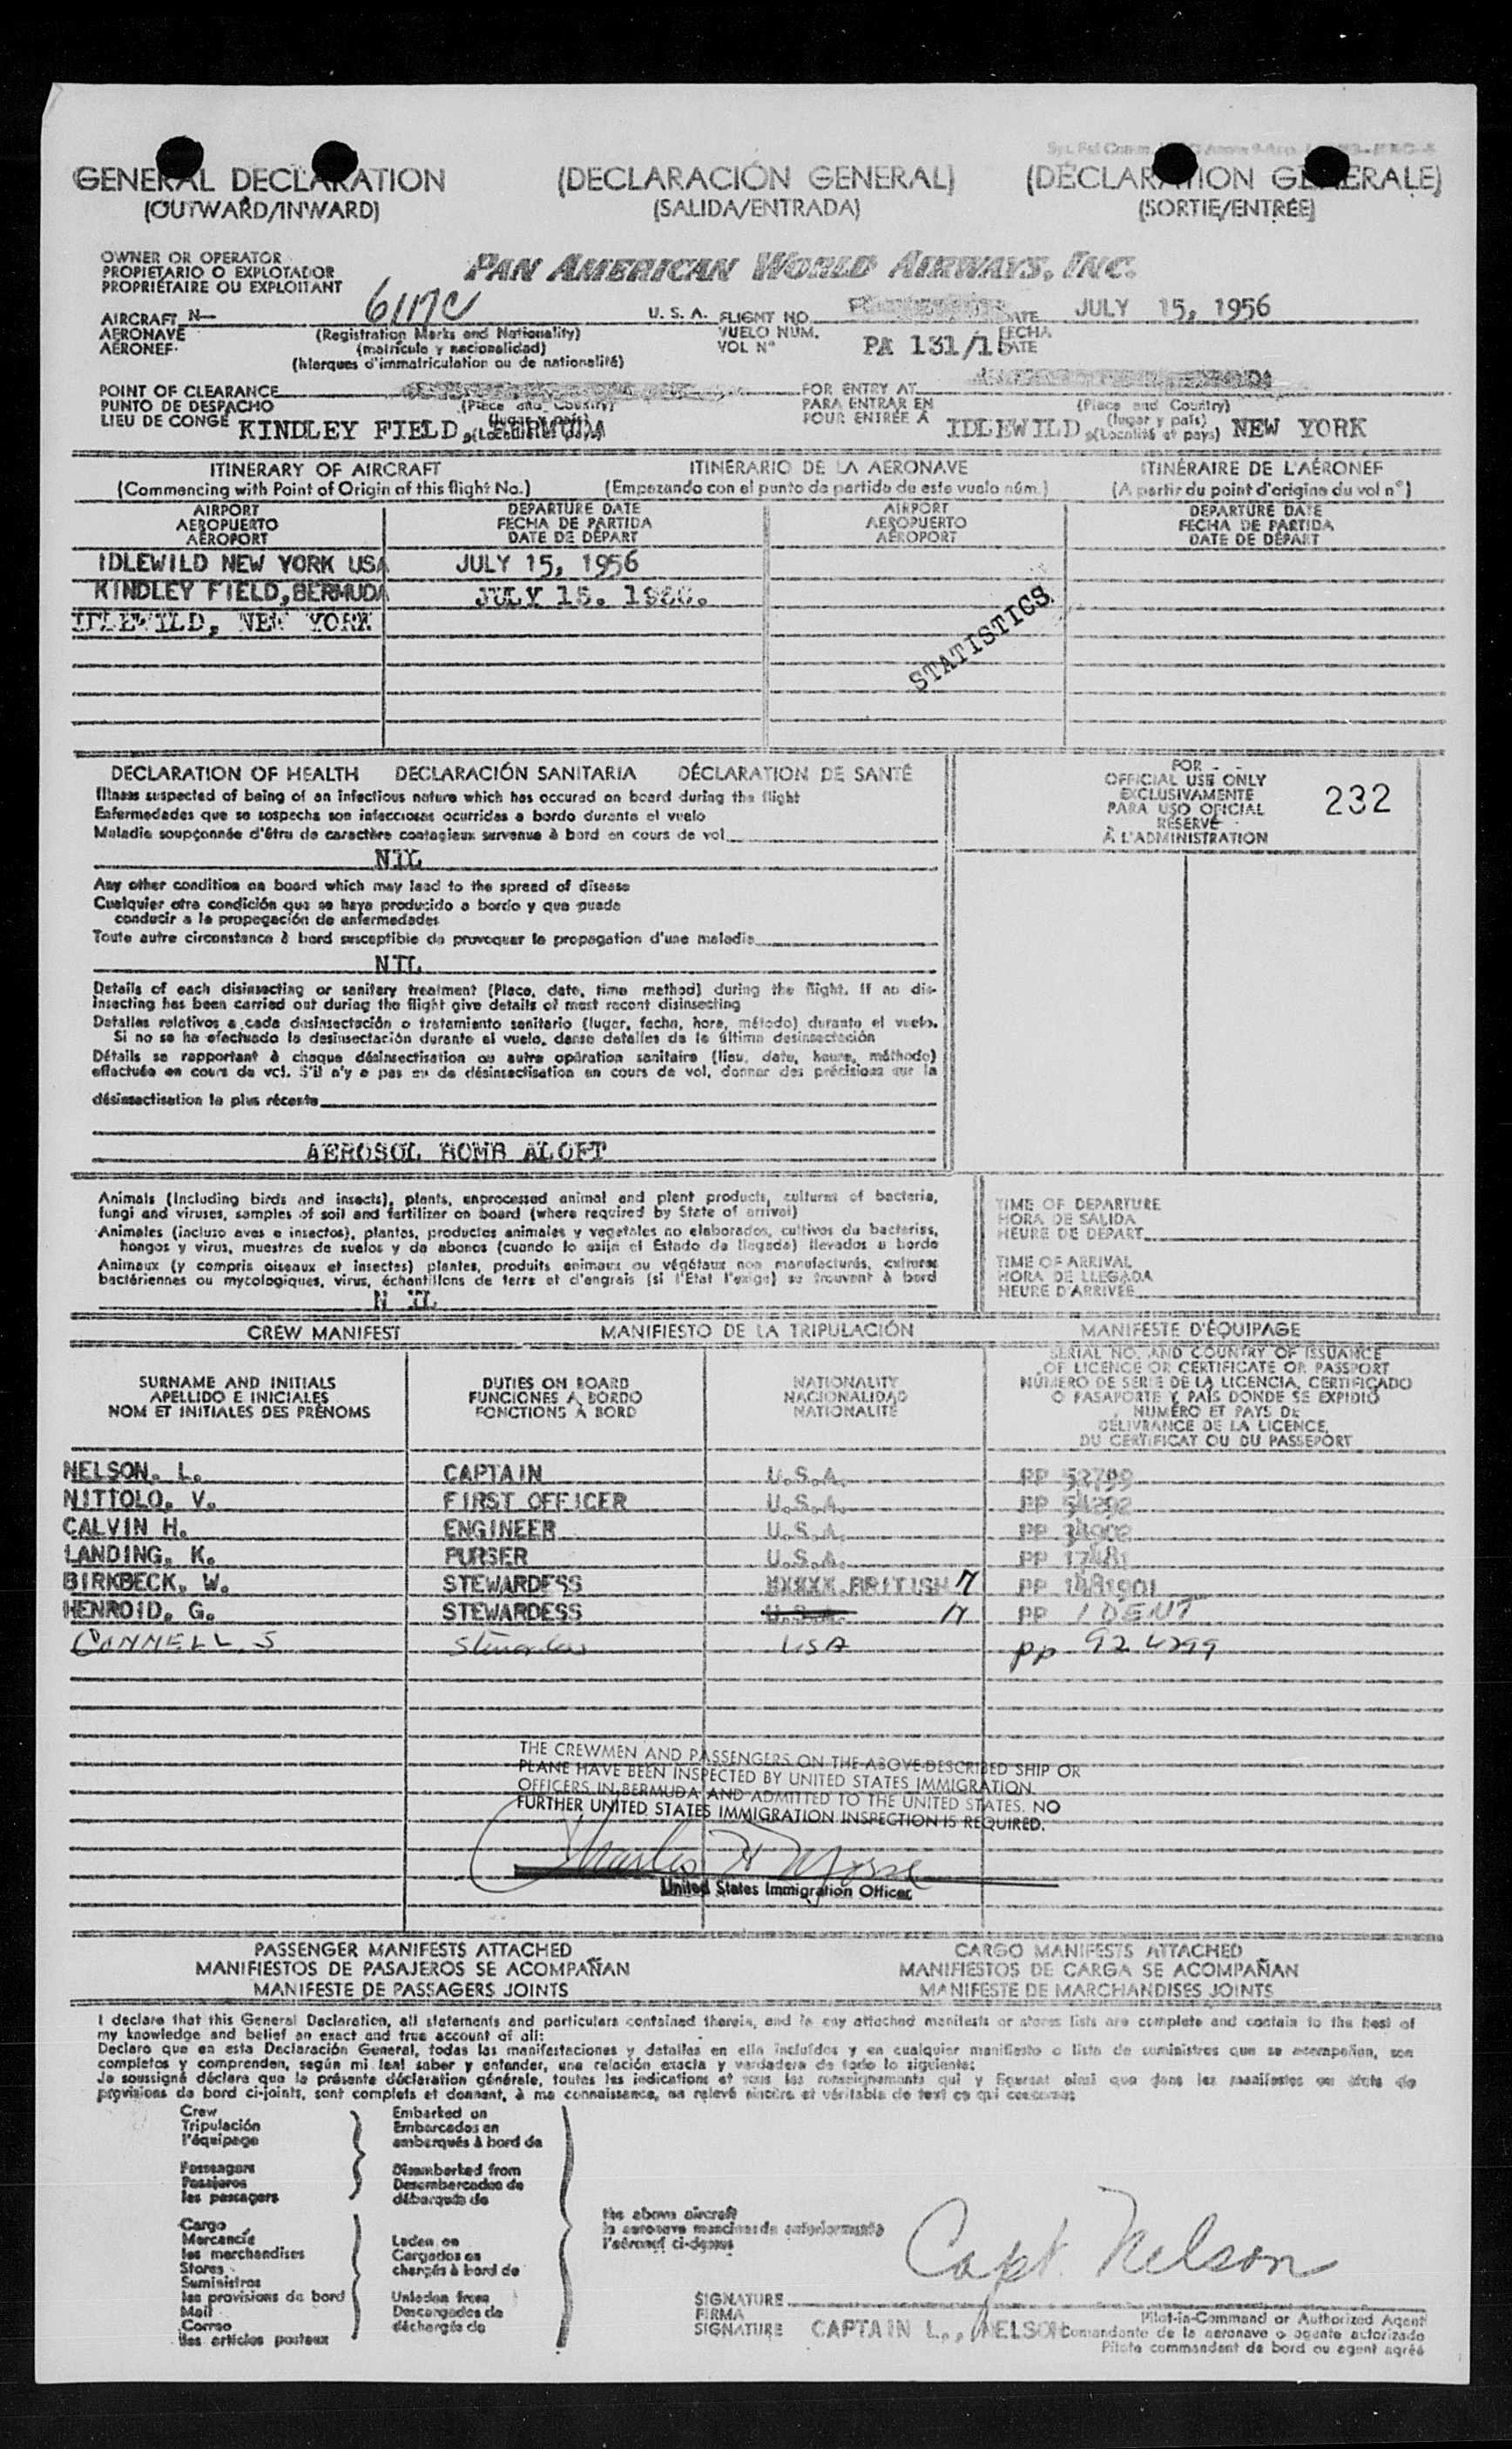 GENERAL DECLARATION (DECLARACIÓN GENERAL) (DÉCLARATION GENERALE)
(OUTWARD/INWARD) (SALIDA/ENTRADA) (SORTIE/ENTRÉE)
OWNER OR OPERATOR
PROPIETARIO O EXPLOTADOR
PROPRIÉTAIRE OU EXPLOITANT
PAN AMERICAN WORLD AIRWAYS, INC.
AIRCRAFT N- U. S. A. FLIGHT NO. DATE JULY 15, 1956
AERONAVE (Registration Marks and Nationality) VUELO NÚM. FECHA
AÉRONEF (matrícula y nacionalidad) VOL N° PA 131/15 DATE
(Marques d'immatriculation ou de nationalité)
POINT OF CLEARANCE FOR ENTRY AT
PUNTO DE DESPACHO (Place and Country) PARA ENTRAR EN (Place and Country)
LIEU DE CONGÉ KINDLEY FIELD, BERMUDA POUR ENTRÉE À IDLEWILD, (lugar y país) (Localité et pays) NEW YORK
ITINERARY OF AIRCRAFT ITINERARIO DE LA AERONAVE ITINÉRAIRE DE L'AÉRONEF
(Commencing with Point of Origin of this flight No.) (Empezando con el punto de partida de este vuelo núm.) (A partir du point d'origine du vol n°)
AIRPORT DEPARTURE DATE AIRPORT DEPARTURE DATE
AEROPUERTO FECHA DE PARTIDA AEROPUERTO FECHA DE PARTIDA
AÉROPORT DATE DE DÉPART AÉROPORT DATE DE DÉPART
IDLEWILD NEW YORK USA JULY 15, 1956
KINDLEY FIELD, BERMUDA JULY 15. 1956.
IDLEWILD, NEW YORK
STATISTICS
DECLARATION OF HEALTH DECLARACIÓN SANITARIA DÉCLARATION DE SANTÉ
Illness suspected of being of an infectious nature which has occured on board during the flight
Enfermedades que se sospecha son infecciosas ocurridas a bordo durante el vuelo
Maladie soupçonnée d'être de caractère contagieux survenue à bord en cours de vol
NIL
FOR
OFFICIAL USE ONLY
EXCLUSIVAMENTE
PARA USO OFICIAL
RÉSERVÉ
À L'ADMINISTRATION
232
Any other condition on board which may lead to the spread of disease
Cualquier otra condición que se haya producido a bordo y que puede
conducir a la propagación de enfermedades
Toute autre circonstance à bord susceptible de provoquer la propagation d'une maladie
NIL
Details of each disinsecting or sanitary treatment (Place, date, time method) during the flight. If no dis-
insecting has been carried out during the flight give details of most recent disinsecting
Detalles relativos a cada desinsectación o tratamiento sanitario (lugar, fecha, hora, método) durante el vuelo.
Si no se ha efectuado la desinsectación durante el vuelo, danse detalles de la última desinsectación
Détails se rapportant à chaque désinsectisation ou autre opération sanitaire (lieu, date, heure, méthode)
effectuée en cours de vol. S'il n'y a pas eu de désinsectisation en cours de vol, donner des précisions sur la
désinsectisation la plus récente
AEROSOL BOMB ALOFT
Animals (Including birds and insects), plants, unprocessed animal and plant products, cultures of bacteria,
fungi and viruses, samples of soil and fertilizer on board (where required by State of arrival)
Animales (incluso aves e insectos), plantas, productos animales y vegetales no elaborados, cultivos de bacterias,
hongos y virus, muestras de suelos y de abonos (cuando lo exija el Estado de llegada) llevados a bordo
Animaux (y compris oiseaux et insectes) plantes, produits animaux ou végétaux non manufacturés, cultures
bactériennes ou mycologiques, virus, échantillons de terre et d'engrais (si l'Etat l'exige) se trouvent à bord
N IL
TIME OF DEPARTURE
HORA DE SALIDA
HEURE DE DÉPART
TIME OF ARRIVAL
HORA DE LLEGADA
HEURE D'ARRIVÉE
CREW MANIFEST MANIFIESTO DE LA TRIPULACIÓN MANIFESTE D'ÉQUIPAGE
SURNAME AND INITIALS
APELLIDO E INICIALES
NOM ET INITIALES DES PRÉNOMS
DUTIES ON BOARD
FUNCIONES A BORDO
FONCTIONS À BORD
NATIONALITY
NACIONALIDAD
NATIONALITÉ
SERIAL NO. AND COUNTRY OF ISSUANCE
OF LICENCE OR CERTIFICATE OR PASSPORT
NÚMERO DE SERIE DE LA LICENCIA, CERTIFICADO
O PASAPORTE Y PAÍS DONDE SE EXPIDIÓ
NUMÉRO ET PAYS DE
DÉLIVRANCE DE LA LICENCE,
DU CERTIFICAT OU DU PASSEPORT
NELSON. L. CAPTAIN U.S.A. PP 52799
NITTOLO. V. FIRST OFFICER U.S.A. PP 54292
CALVIN H. ENGINEER U.S.A. PP 34902
LANDING. K. PURSER U.S.A. PP 17481
BIRKBECK. W. STEWARDESS XXXXX BRITISH PP
HENROID. G. STEWARDESS U.S.A. PP IDENT
CONNELL. S Stewardess USA PP 924299
THE CREWMEN AND PASSENGERS ON THE ABOVE-DESCRIBED SHIP OR
PLANE HAVE BEEN INSPECTED BY UNITED STATES IMMIGRATION
OFFICERS IN BERMUDA AND ADMITTED TO THE UNITED STATES. NO
FURTHER UNITED STATES IMMIGRATION INSPECTION IS REQUIRED.
Charles H
United States Immigration Officer
PASSENGER MANIFESTS ATTACHED CARGO MANIFESTS ATTACHED
MANIFIESTOS DE PASAJEROS SE ACOMPAÑAN MANIFIESTOS DE CARGA SE ACOMPAÑAN
MANIFESTE DE PASSAGERS JOINTS MANIFESTE DE MARCHANDISES JOINTS
I declare that this General Declaration, all statements and particulars contained therein, and in any attached manifests or stores lists are complete and contain to the best of
my knowledge and belief an exact and true account of all:
Declaro que en esta Declaración General, todas las manifestaciones y detalles en ella incluídos y en cualquier manifiesto o lista de suministros que se acompañan, son
completos y comprenden, según mi leal saber y entender, una relación exacta y verdadera de todo lo siguiente:
Je soussigné déclare que la présente déclaration générale, toutes les indications et tous les renseignements qui y figurent ainsi que dans les manifestes ou états de
provisions de bord ci-joints, sont complets et donnent, à ma connaissance, un relevé sincère et véritable de tout ce qui concerne:
Crew Embarked on
Tripulación Embarcados en
l'équipage embarqués à bord de
Passengers Disembarked from
Pasajeros Desembarcados de
les passagers débarqués de
Cargo
Mercancía Laden on
les marchandises Cargados en
Stores chargés à bord de
Suministros
les provisions de bord Unladen from
Mail Descargados de
Correo déchargés de
les articles postaux
the above aircraft
la aeronave mencionada anteriormente
l'aéronef ci-dessus
Capt. Nelson
SIGNATURE
FIRMA
SIGNATURE CAPTAIN L., NELSON
Pilot-in-Command or Authorized Agent
Comandante de la aeronave o agente autorizado
Pilote commandant de bord ou agent agréé